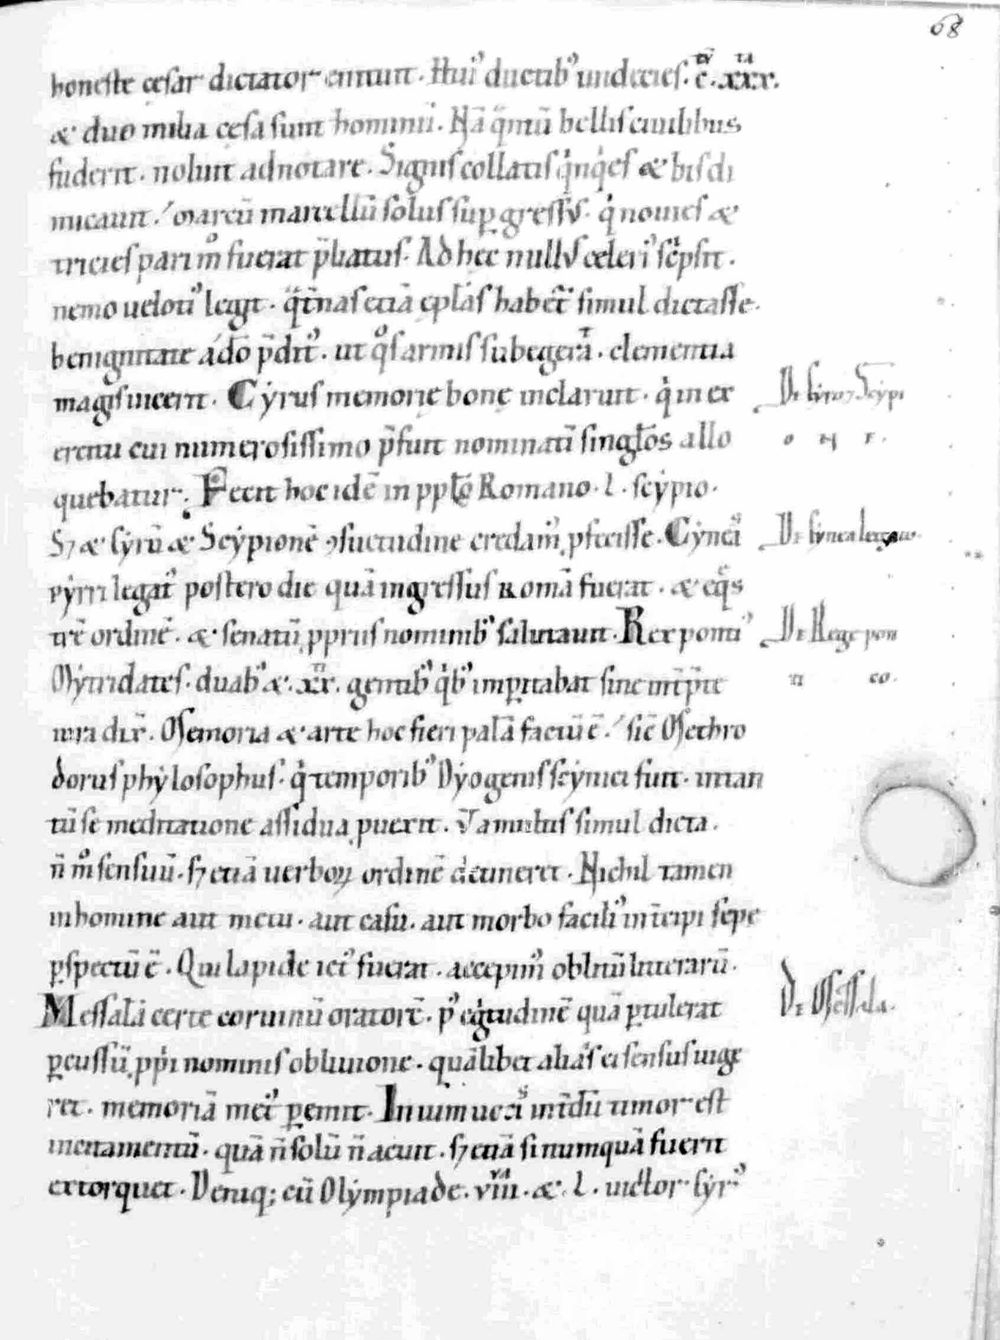 68
honeste cesar dictator enituit. Hui᾽ ductib᾽ undecies. c̄. xxx.
& duo milia cesa sunt hominū. Nā q̄ntū bellis ciuilibus
fuderit. noluit adnotare. Signis collatis q̇nq̇es & bis di
micauit. marcū marcellū solus sup̱gressus. q̇ nouies &
tricies pari m̊ fuerat p̄liatus. Ad hec nullus celeri᾽ sċpsit.
nemo ueloti᾽ legit. q̄t̄nas etiā ep̄las habet᾽ simul dictasse.
benignitate ádō p̄dit᾽. ut q̊s armis subegerat. clementia
magis uicerit. Cyrus memorie bone inclaruit. q̇ in ex
ercitu cui numerosissimo p̄fuit nominatī singl̄os allo
quebatur. Fecit hoc idē in pp̄lo Romano. L. scypio.
Sꝫ & syrū & Scypionē ꝯsuetudine credam᾽ ꝓfecisse. Cyneas
pyrri legat᾽ postero die quā ingressus Romā fuerat. & eq̄s
trē ordinē. & senatū ꝓpriis nominib᾽ salutauit. Rex ponti᾽
Mytridates. duab᾽ &. xx. gentib᾽ q̇b᾽ imp̱itabat sine int̄p̄te
iura dix̄. Memoria & arte hoc fieri palā factū ē. sic̄ Methro
dorus phylosophus. q̇ temporib᾽ Dyogenis scynici fuit. intan
tū se meditatione assidua ꝓuexit. ut a multis simul dicta.
n̄ m̊ sensuū. sꝫ etiā uerboꝝ ordinē detineret. Nichil tamen
in homine aut metu. aut casu. aut morbo facili᾽ int̄cipi sepe
p̱spectū ē. Qui lapide ict᾽ fuerat. accepim᾽ oblitū litterarū.
Messalā certe coruinū oratorē. p᾽ egritudinē quā p̱tulerat
p̱cussū ꝓprii nominis obliuione. quālibet alias ei sensus uige
ret. memoriā met᾽ p̱emit. Inuicem
mentamentū. quā n̄ solū n̄ acuit. sꝫ etiā si numquā fuerit
extorquet. Deniq; cū Olympiade. viii. & L. uictor syr᾽
De syro ⁊ Scypi
o n e.
De synea legato.
De Rege pon
ti co.
De Messala.